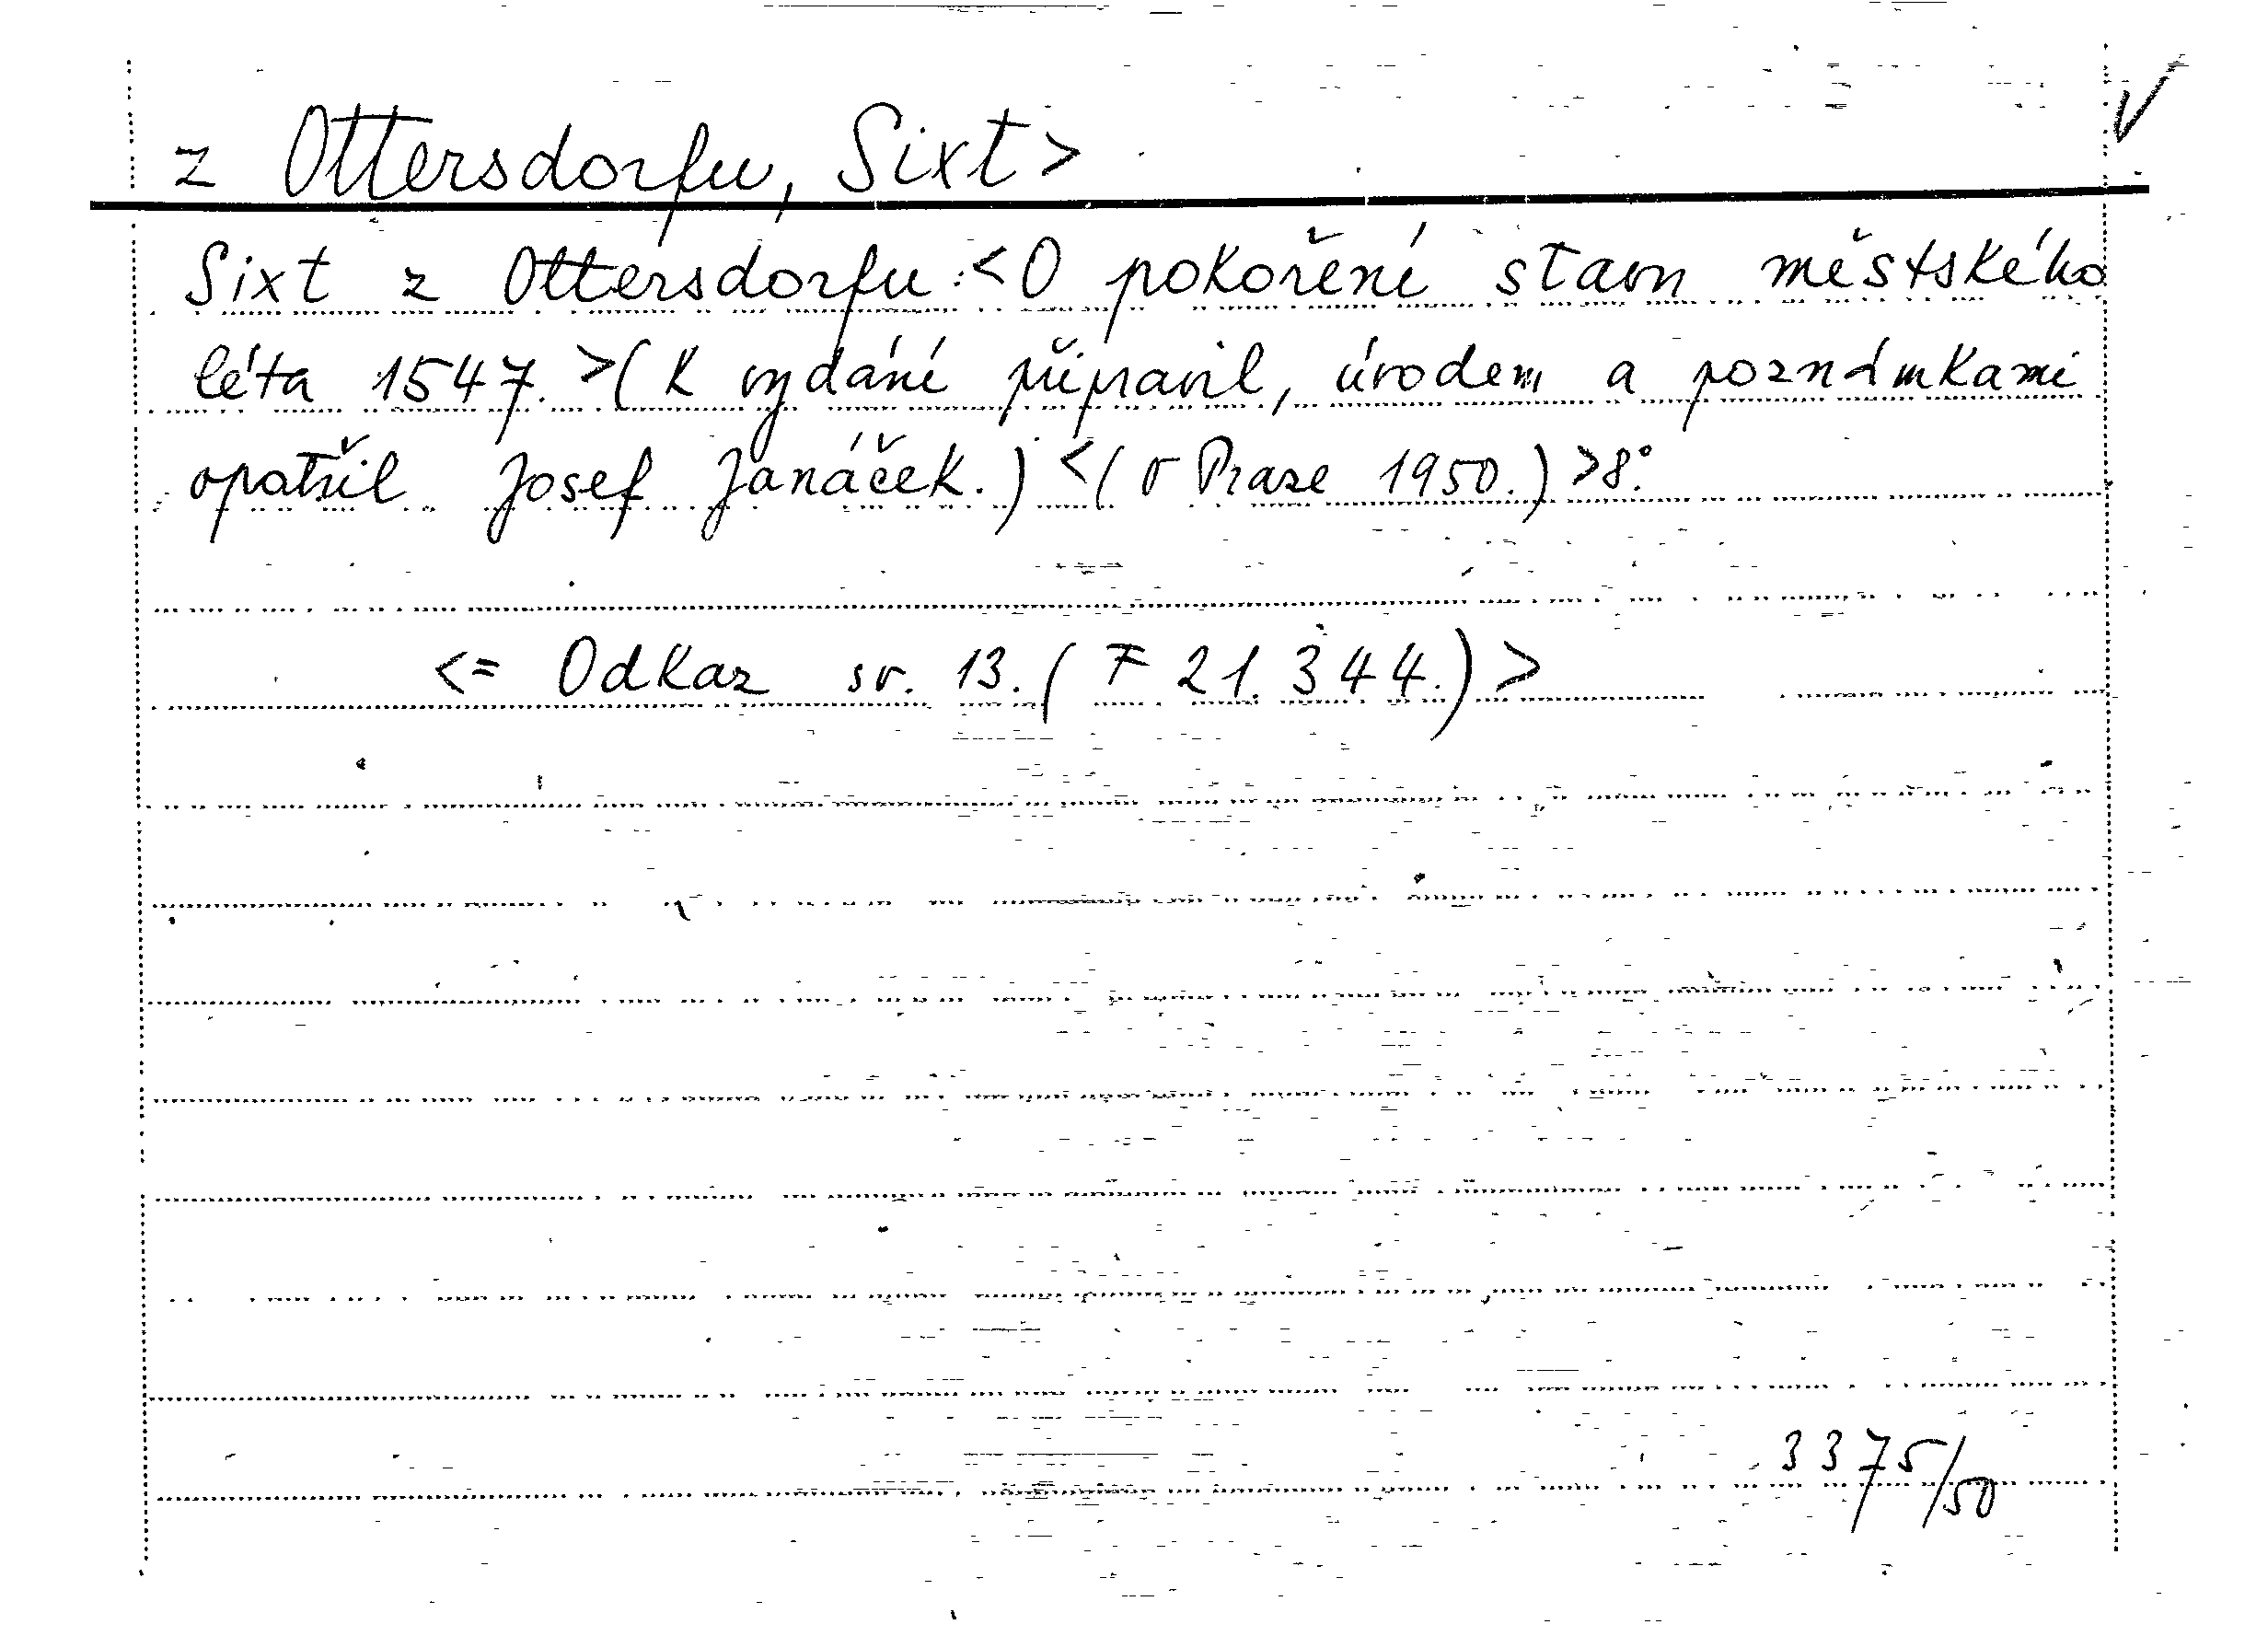 z Ottersdorfu, Sixt>
Sixt z Ottersdorfu: <O pokoření stavu městského
léta 1547. >(K vydání připravil, úvodem a poznámkami
opatřil Josef Janáček.) <(V Praze 1950.) >8°.
<= Odkaz sv. 13. (F 21.344.) >
3375/50